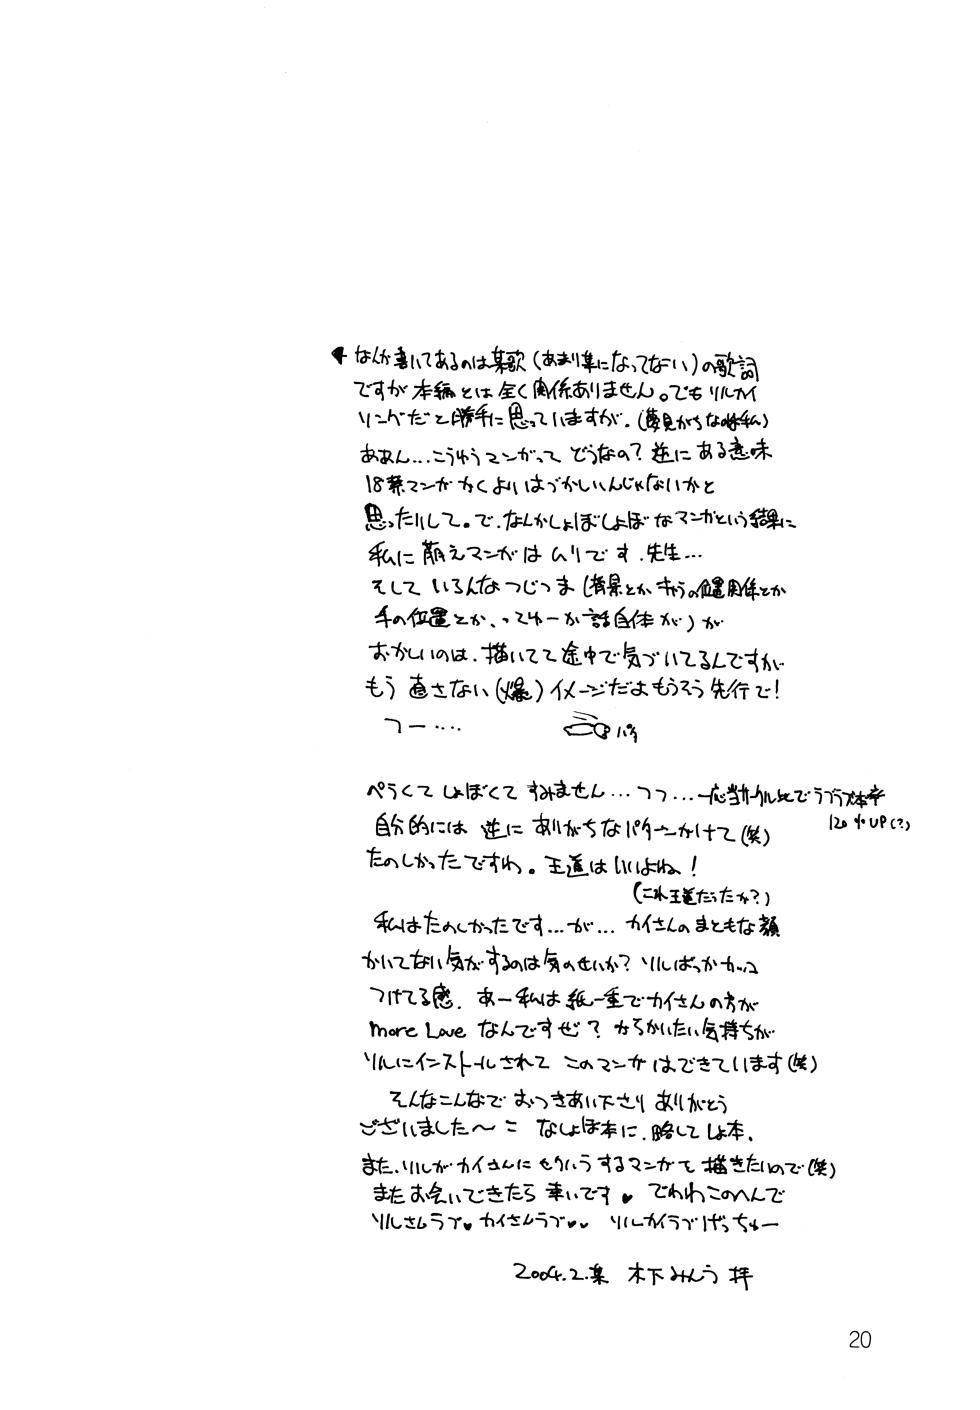 なんか書いてあるのは某歌(あまり隼になってない)の歌詞
ですが本編とは全く関係ありません。でもソルカイ
ソングだと勝手に思っていますが。(夢見がちな 私)
ああん…こうゆうマンガって どうなの?逆に ある意味
18禁マンガ かくよりはづかしいんじゃないかと
思ったりして。で、なんかしょぼしょぼなマンガという結果に
私に萌えマンガはムリです、先生…
そして いろんなつじつま(背景とか キャラの位置関係とか
手の位置とか、ってゆーか 話自体が)が
おかしいのは、描いてて途中で気づいてるんですが
もう 直さない(爆)イメージだよもうそう先行で!
つー‥‥
パタ
ぺらくて しょぼくて すみません…フフ…一応当サークル比でラブラブ本率
120% UP(?)
自分的には 逆に ありがちなパターンかけて(笑)
たのしかったですわ。王道はいいよね!
(これ王道だったか?)
私はたのしかったです…が…カイさんのまともな顔
かいてない気がするのは気のせいか?ソルばっかカッコ
つけてる感。あー私は紙一重でカイさんの方が
more Love なんですぜ?からかいたい気持ちが
ソルにインストールされて このマンガはできています(笑)
そんなこんなで おつきあい下さり ありがとう
ございました〜 こ なしょぼ本に、略してしょ本。
また、ソルがカイさんに せくハラするマンガで 描きたいので(笑)
またお会いできたら 幸いです♥ でわわこのへんで
ソルさんラブ♥カイさんラブ♥♥ ソルカイラブげっちゅー
2004.2.某 木下みんう 拝
20